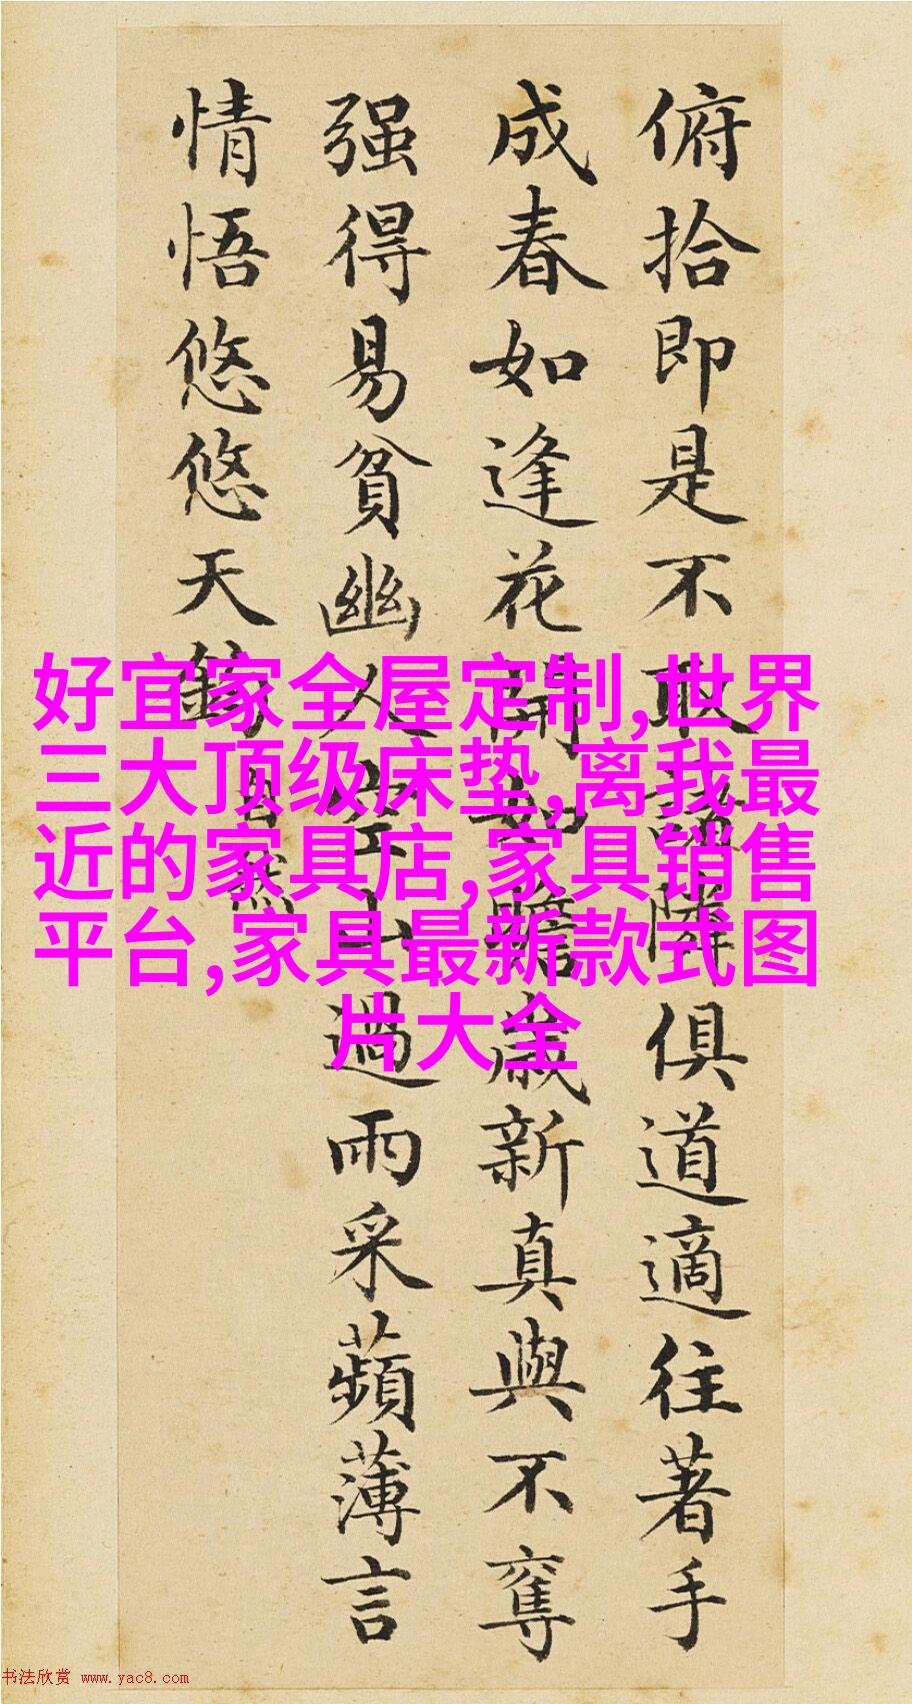 俯拾即是不取諸隣俱道適往著手
成春如逢花開如瞻歲新真與不奪
强得易貧幽人空山過雨采蘋薄言
情悟悠悠天鈞
自然
好宜家全屋定制,世界
三大顶级床垫,离我最
近的家具店,家具销售
平台,家具最新款式图
片大全
书法欣赏 www.yac8.com